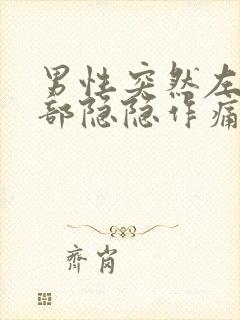 男性突然左
部隐隐作痛
齐肖